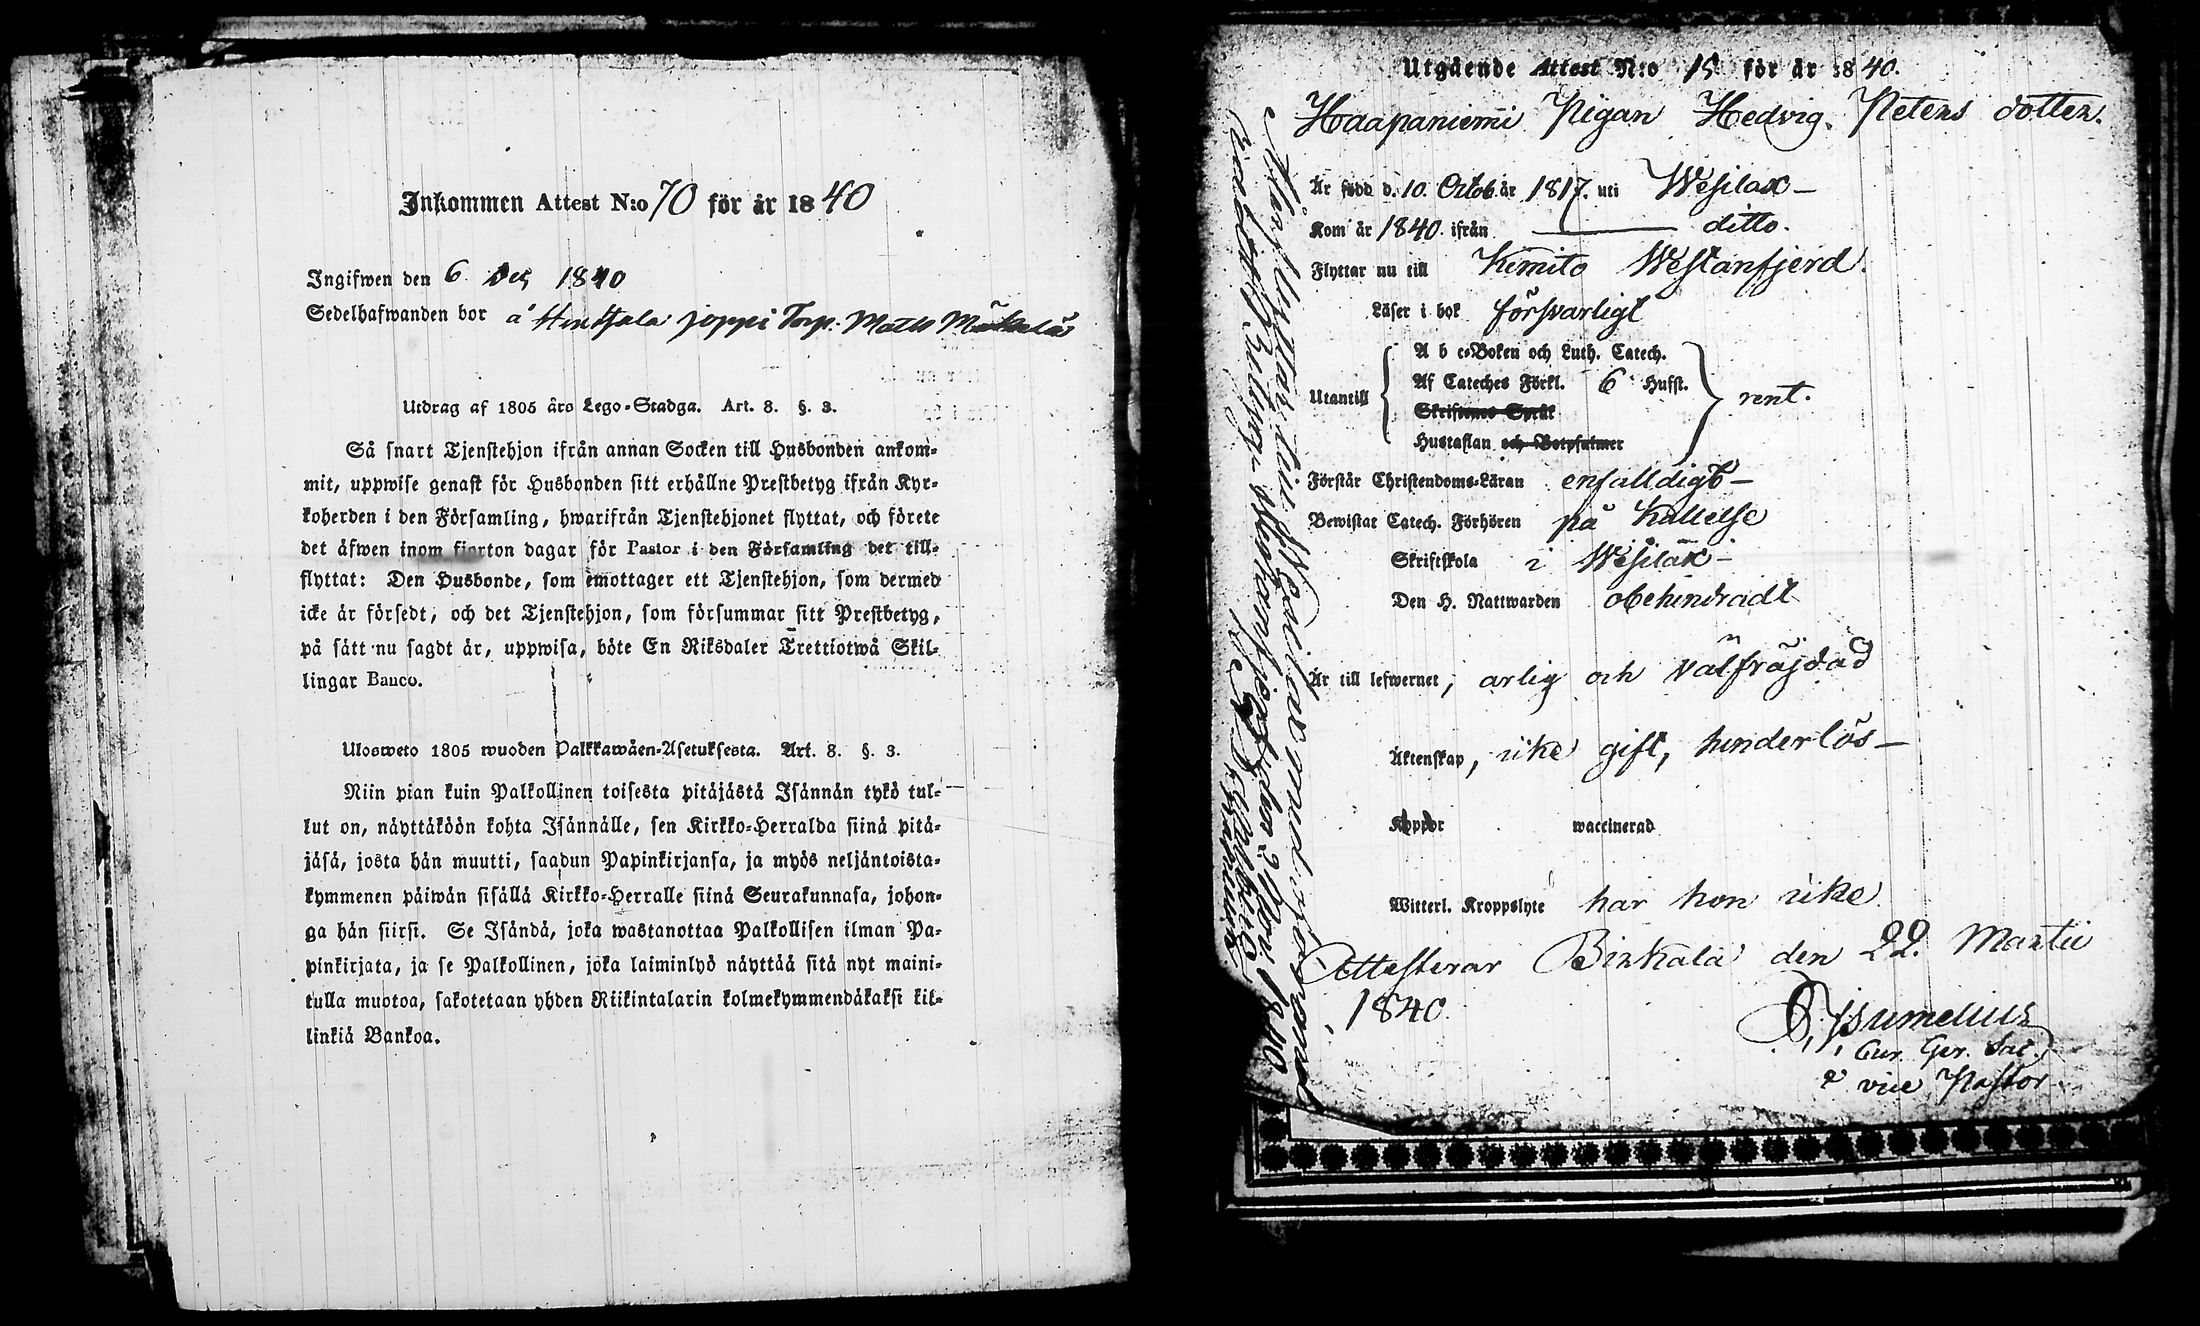 Inkommen Attest N:o 70 för år 1840
Ingifwen den 6 Dec 1840
Sedelhafwanden bor å Torp. Matts
Utdrag af 1805 års Lego-Stadga. Art. 8. §. 3.
Så snart Tjenstehjon ifrån annan Socken till Husbonden ankom-
mit, uppwise genast för Husbonden sitt erhållne Prestbetyg ifrån Kyr-
koherden i den Församling, hwarifrån Tjenstehjonet flyttat, och förete
det äfwen inom fjorton dagar för Pastor i den Församling det till-
flyttat: Den Husbonde, som emottager ett Tjenstehjon, som dermed
icke är försedt, och det Tjenstehjon, som försummar sitt Prestbetyg,
på sätt nu sagdt är, uppwisa, böte En Riksdaler Trettiotwå Skil-
lingar Banco.
Ulosweto 1805 wuoden Palkkawäen-Asetuksesta. Art. 8. §. 3.
Niin pian kuin Palkollinen toisesta pitäjästä Isännän tykö tul-
lut on, näyttäköön kohta Isännälle, sen Kirkko-Herralda siinä pitä-
jäsä, josta hän muutti, saadun Papinkirjansa, ja myös neljäntoista-
kymmenen päiwän sisällä Kirkko-Herralle siinä Seurakunnasa, johon-
ga hän siirsi. Se Isändä, joka wastanottaa Palkollisen ilman Pa-
pinkirjata, ja se Palkollinen, joka laiminlyö näyttää sitä nyt maini-
tulla muotoa, sakotetaan yhden Riikintalarin kolmekymmendäkaksi kil-
linkiä Bankoa.
Utgående Attest N:o 15 för år 1840.
Haapaniemi Pigan Hedvig Peters dotter.
Är född d. 10. Octob. år 1817. uti Wesilax –
Kom år 1840 ifrån ditto.
Flyttar nu till Kimito Westanfjerd.
Läser i bok försvarligt
A b c-Boken och Luth. Catech.
Af Cateches Förkl. 6 Hufst.
Utantill rent.
Skriftenes Språk
Hustaflan och Botpsalmer
Förstår Christendoms-Läran enfalldigt –
Bewistat Catech. Förhören på kallelse
Skriftskola i Wesilax –
Den H. Nattwarden obehindradt
Är till lefwernet, ärlig och välfräjdad
Äktenskap, icke gift, hinderlös –
Koppor waccinerad
Witterl. Kroppslyte har hon icke
Attesterar Birkala den 22. Martii
1840.
Cur. Ger. Sac.
v vice Pastor